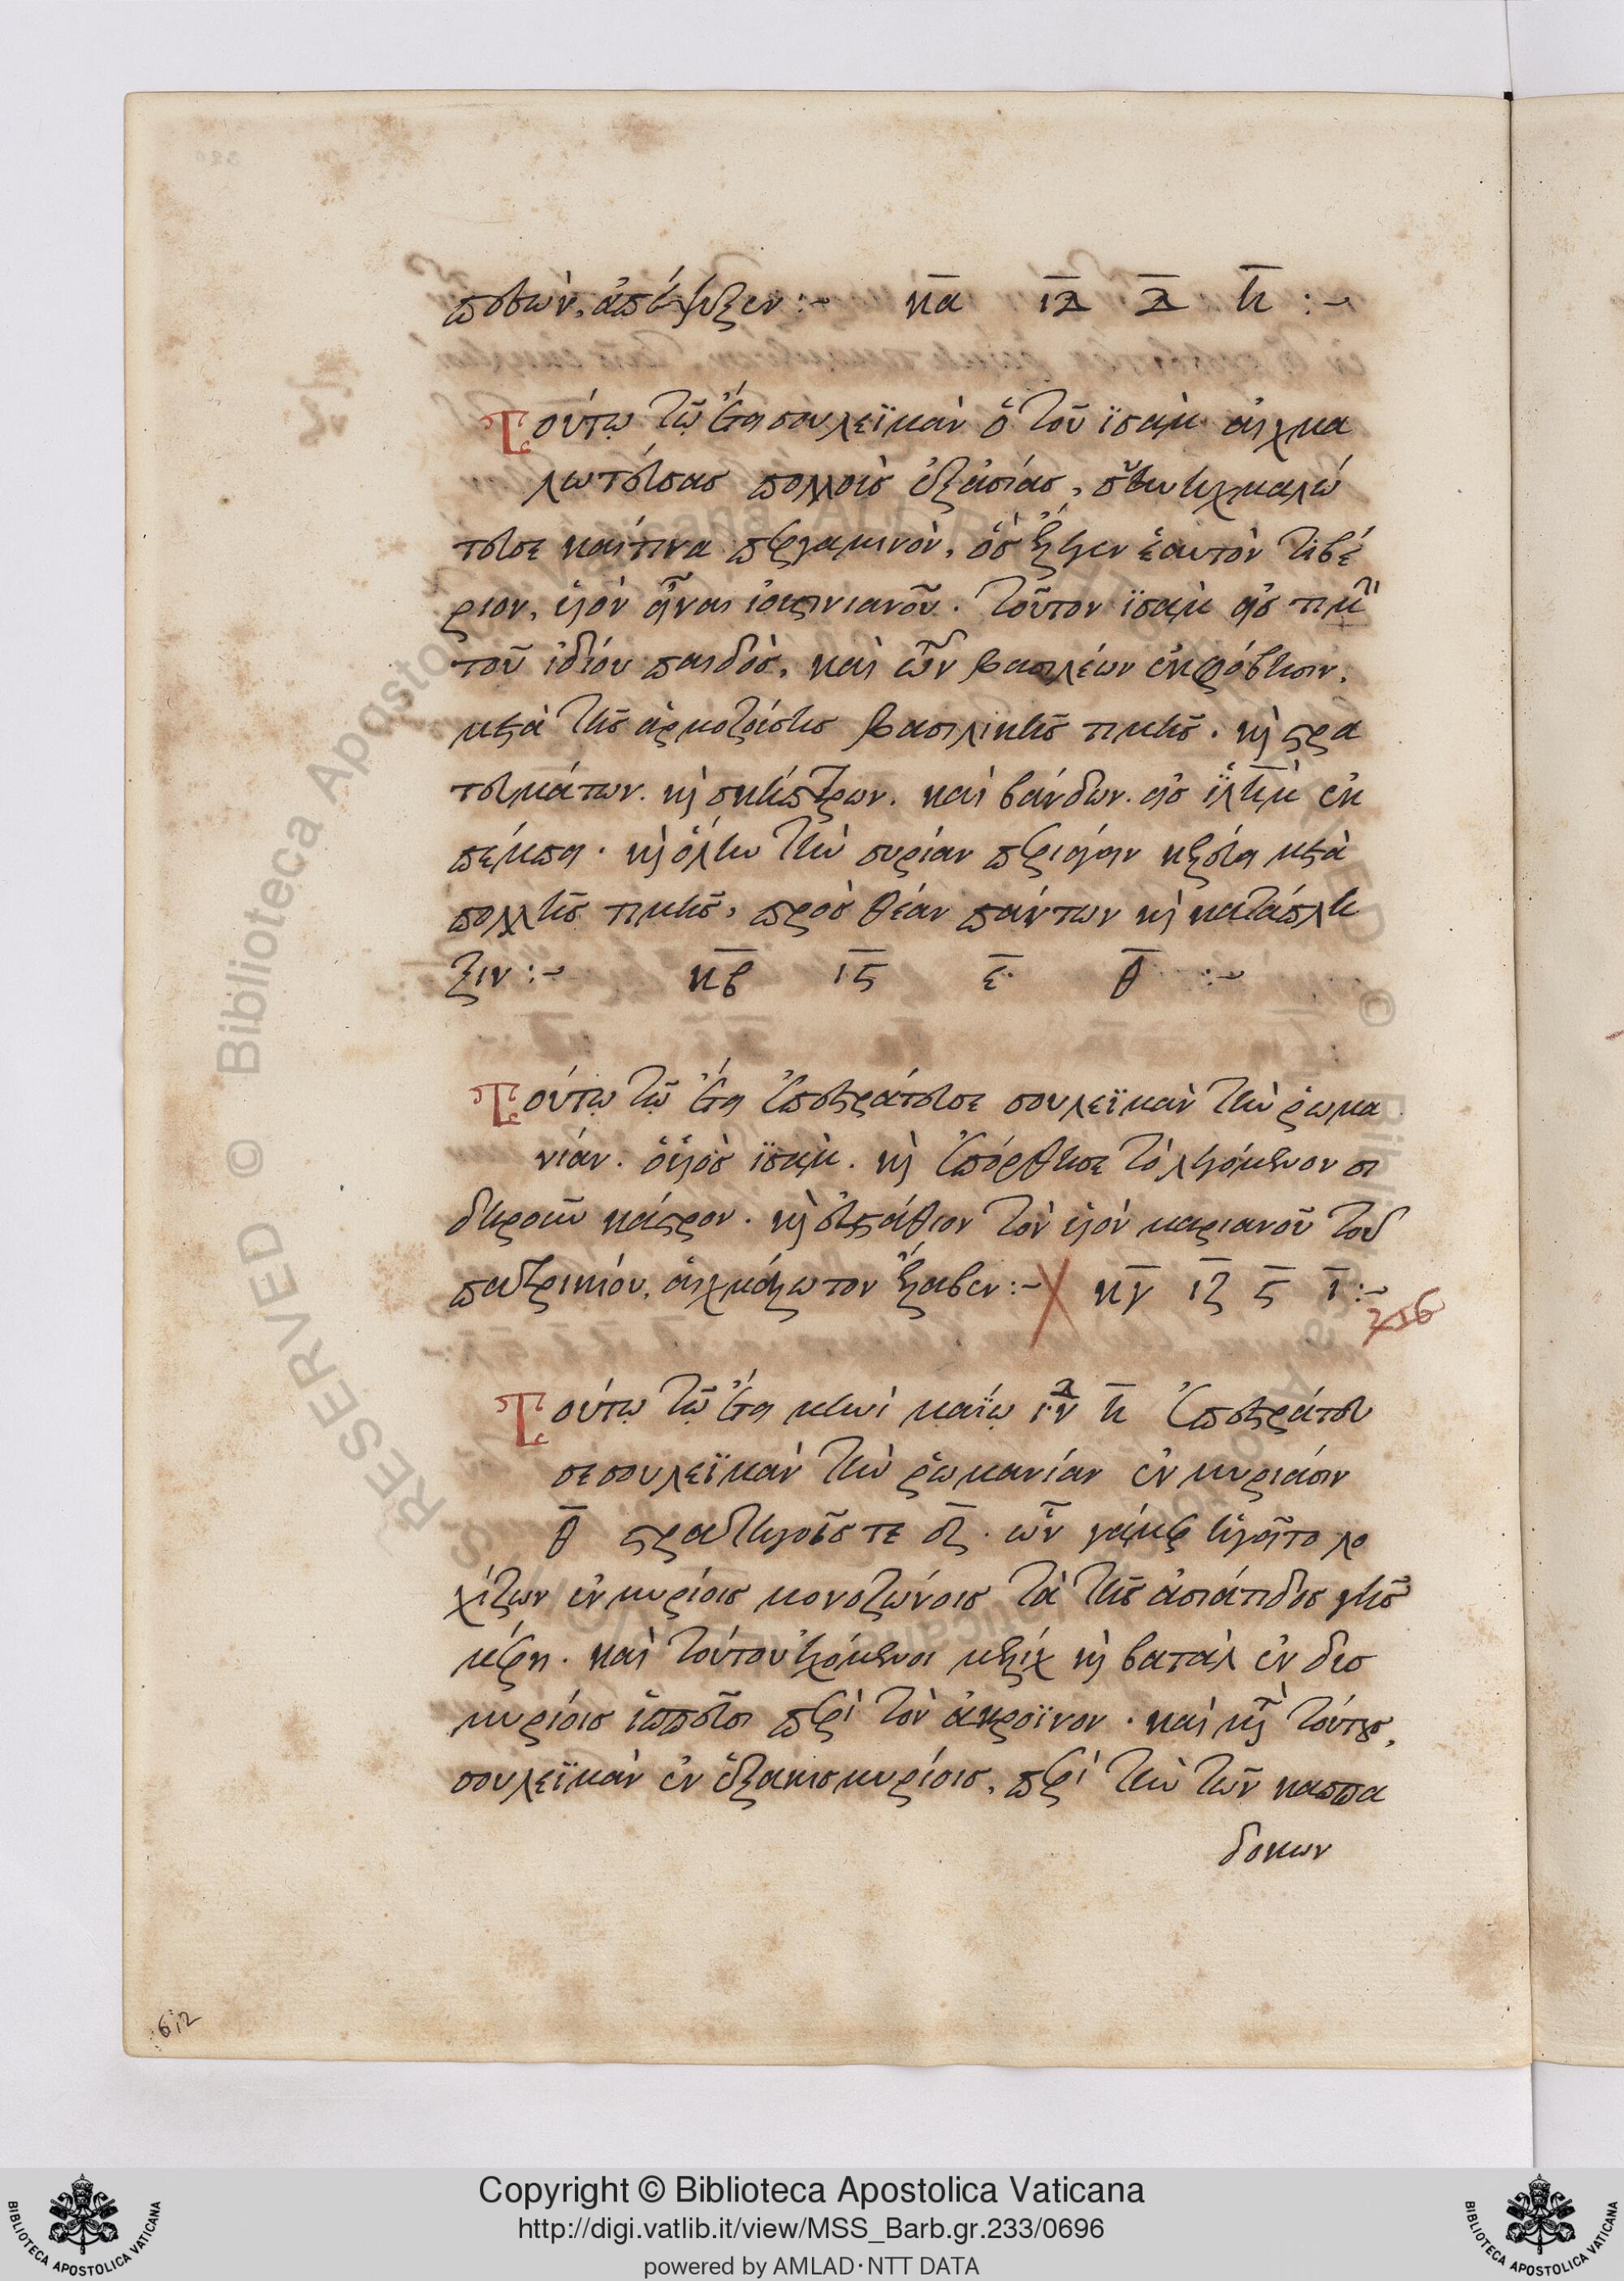 ποθῶν, ἀπέψυξεν :~ κα ιδ δ η :~
Τούτῳ τῷ ἔτει σουλεϊμὰν ὁ τοῦ ἰσὰμ αἰχμα
λωτεύσας πολλοὺς ἐξ ἀσίας, σὺν ᾐχμαλώ
τευσε καί τινα περγαμηνὸν, ὃς ἔλεγεν ἑαυτὸν τιβέ
ριον, υἱὸν εἶναι ἰουστινιανοῦ. τοῦτον ἰσὰμ εἰς τιμὴν
τοῦ ἰδίου παιδὸς, καὶ τῶν βασιλέων ἐκφόβησιν,
μετὰ τῆς ἁρμοζούσης βασιλικῆς τιμῆς. καὶ στρα
τευμάτων. καὶ σκήπτρων. καὶ βάνδων. εἰς ἱλὴμ ἐκ
πέμπει. καὶ ὅλην τὴν συρίαν περιάγειν κελεύει μετὰ
πολλῆς τιμῆς, πρὸς θέαν πάντων καὶ κατάπλη
ξιν :~ κβ ις ε θ :~
Τούτῳ τῷ ἔτει ἐπεστράτευσε σουλεϊμὰν τὴν ῥωμα
νίαν. ὁ υἱὸς ἰσὰμ. καὶ ἐπόρθησε τὸ λεγόμενον σι
δηροῦν κάστρον. καὶ εὐστάθιον τὸν υἱὸν μαριανοῦ τοῦ
πατρικίου, αἰχμάλωτον ἔλαβεν :~ κγ ιζ ς ι :~
Τούτῳ τῷ ἔτει μηνὶ μαΐῳ ἰνδ η ἐπεστράτευ
σε σουλεϊμὰν τὴν ῥωμανίαν ἐν μυριάσιν
θ στρατηγοῖς τε δ. ὧν γάμερ ἡγεῖτο λο
χίζων ἐν μυρίοις μονοζώνοις τὰ τῆς ἀσιάτιδος γῆς
μέρη. καὶ τούτου ἐχόμενοι μελὶχ καὶ βατὰλ ἐν δισ
μυρίοις ἱππεῦσι περὶ τὸν ἀκροϊνον. καὶ μετὰ τούτους,
σουλεϊμὰν ἐν ἑξακισμυρίοις, περὶ τὴν τῶν καππα
δοκων
612
Copyright © Biblioteca Apostolica Vaticana
http://digi.vatlib.it/view/MSS_Barb.gr.233/0696
powered by AMLAD·NTT DATA